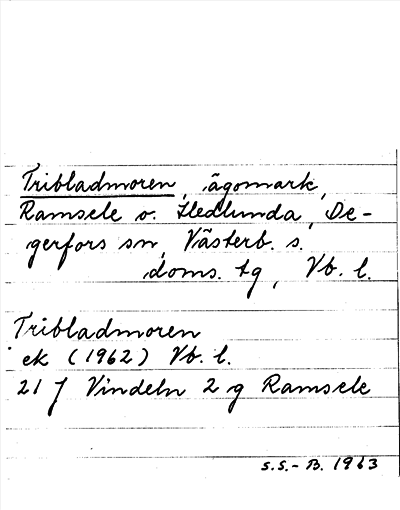 Tribladmoren, ägomark,
Ramsele o. Hedlunda, De-
gerfors sn, Västerb. s.
doms. tg, Vb. l.
Tribladmoren
ek (1962) Vb. l.
21 J Vindeln 2 g Ramsele
S.S.-B. 1963